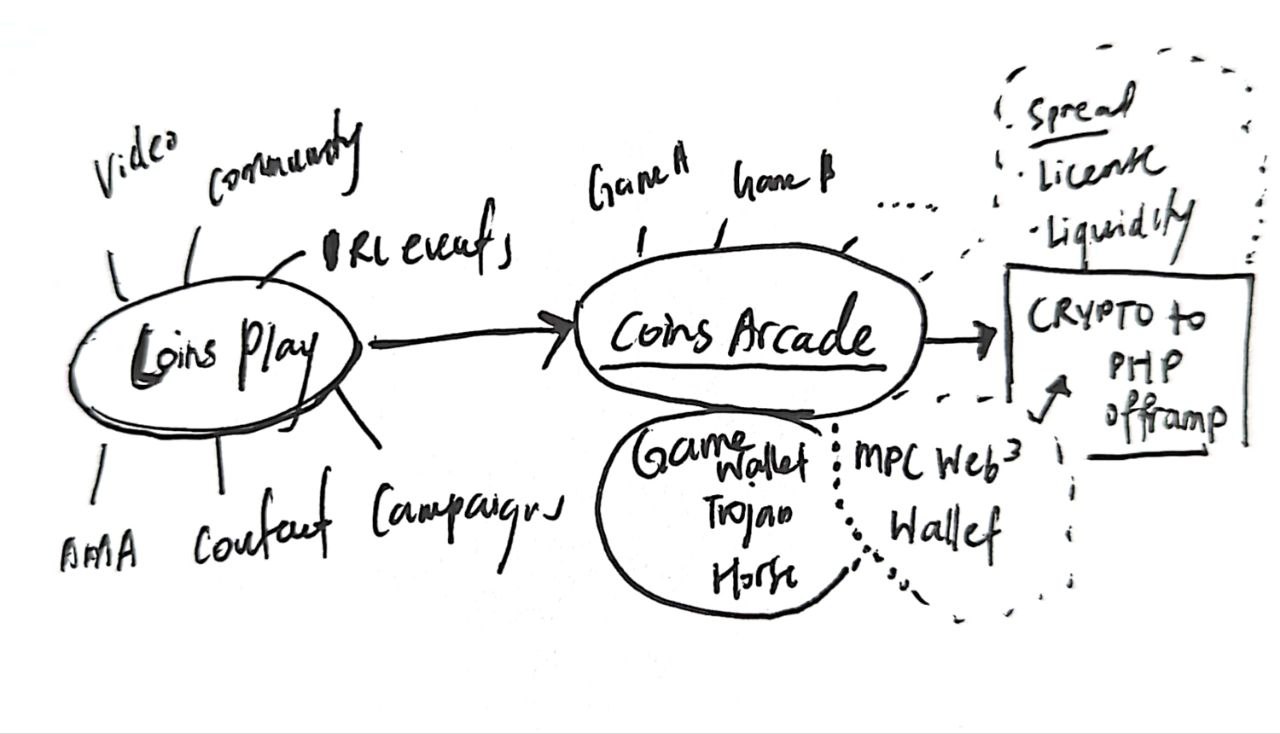 Video
Community
IRL events
Coins Play
AMA
Content
Campaigns
Game A
Game B
.....
Coins Arcade
Game
Wallet
Trojan
Horse
MPC Web3
Wallet
Spread
· License
· Liquidity
CRYPTO to
PHP
offramp